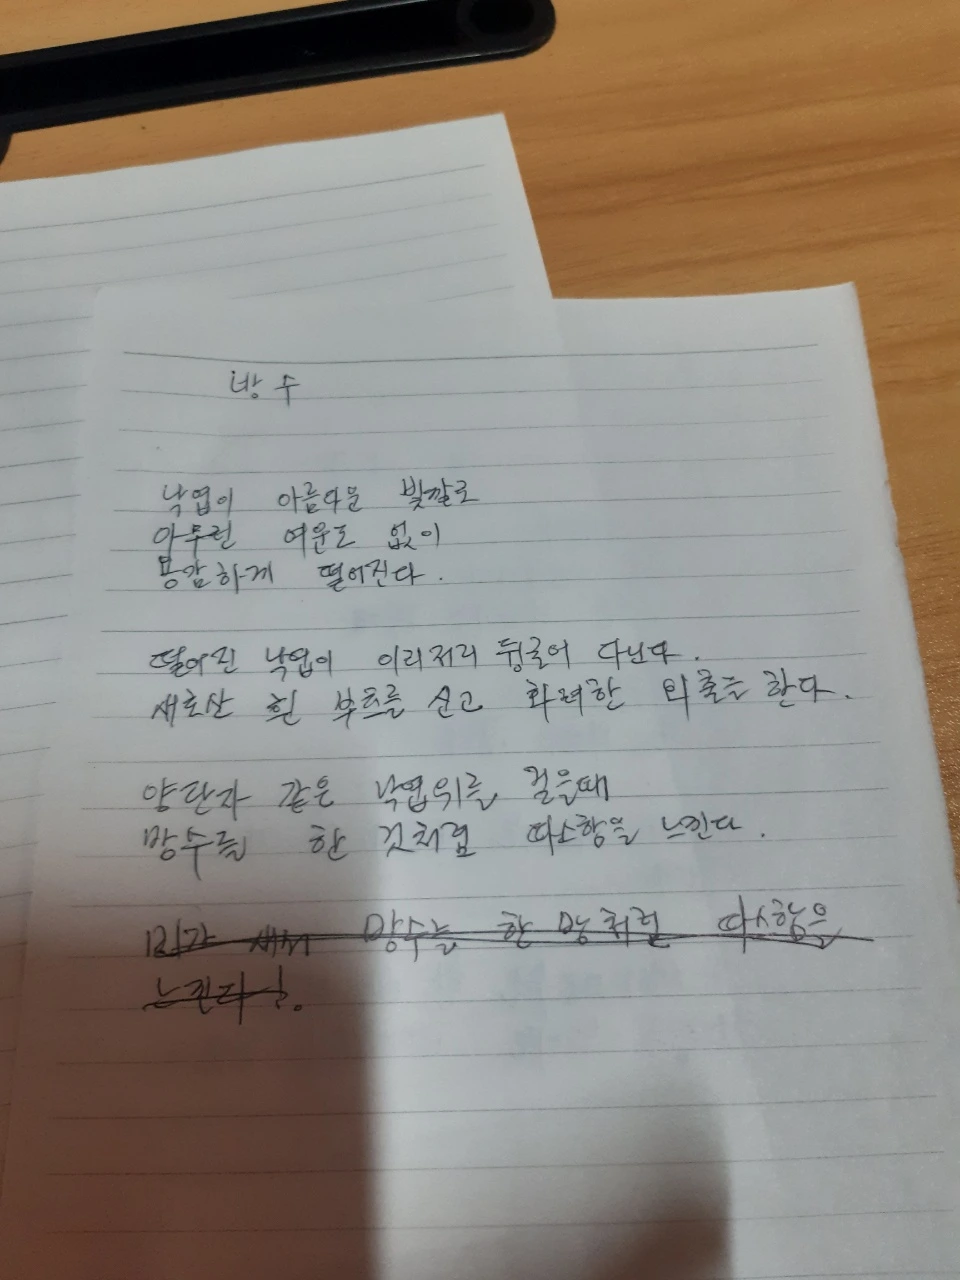 방수
낙엽이 아름다운 빛깔로
아무런 여운도 없이
용감하게 떨어진다.
떨어진 낙엽이 이리저리 뒹굴어 다닌다.
새로산 흰 부츠를 신고 화려한 외출을 한다.
양탄자 같은 낙엽위를 걸을때
방수를 한 것처럼 따스함을 느낀다.
방수를 한 처럼 따스함을
느낀다.